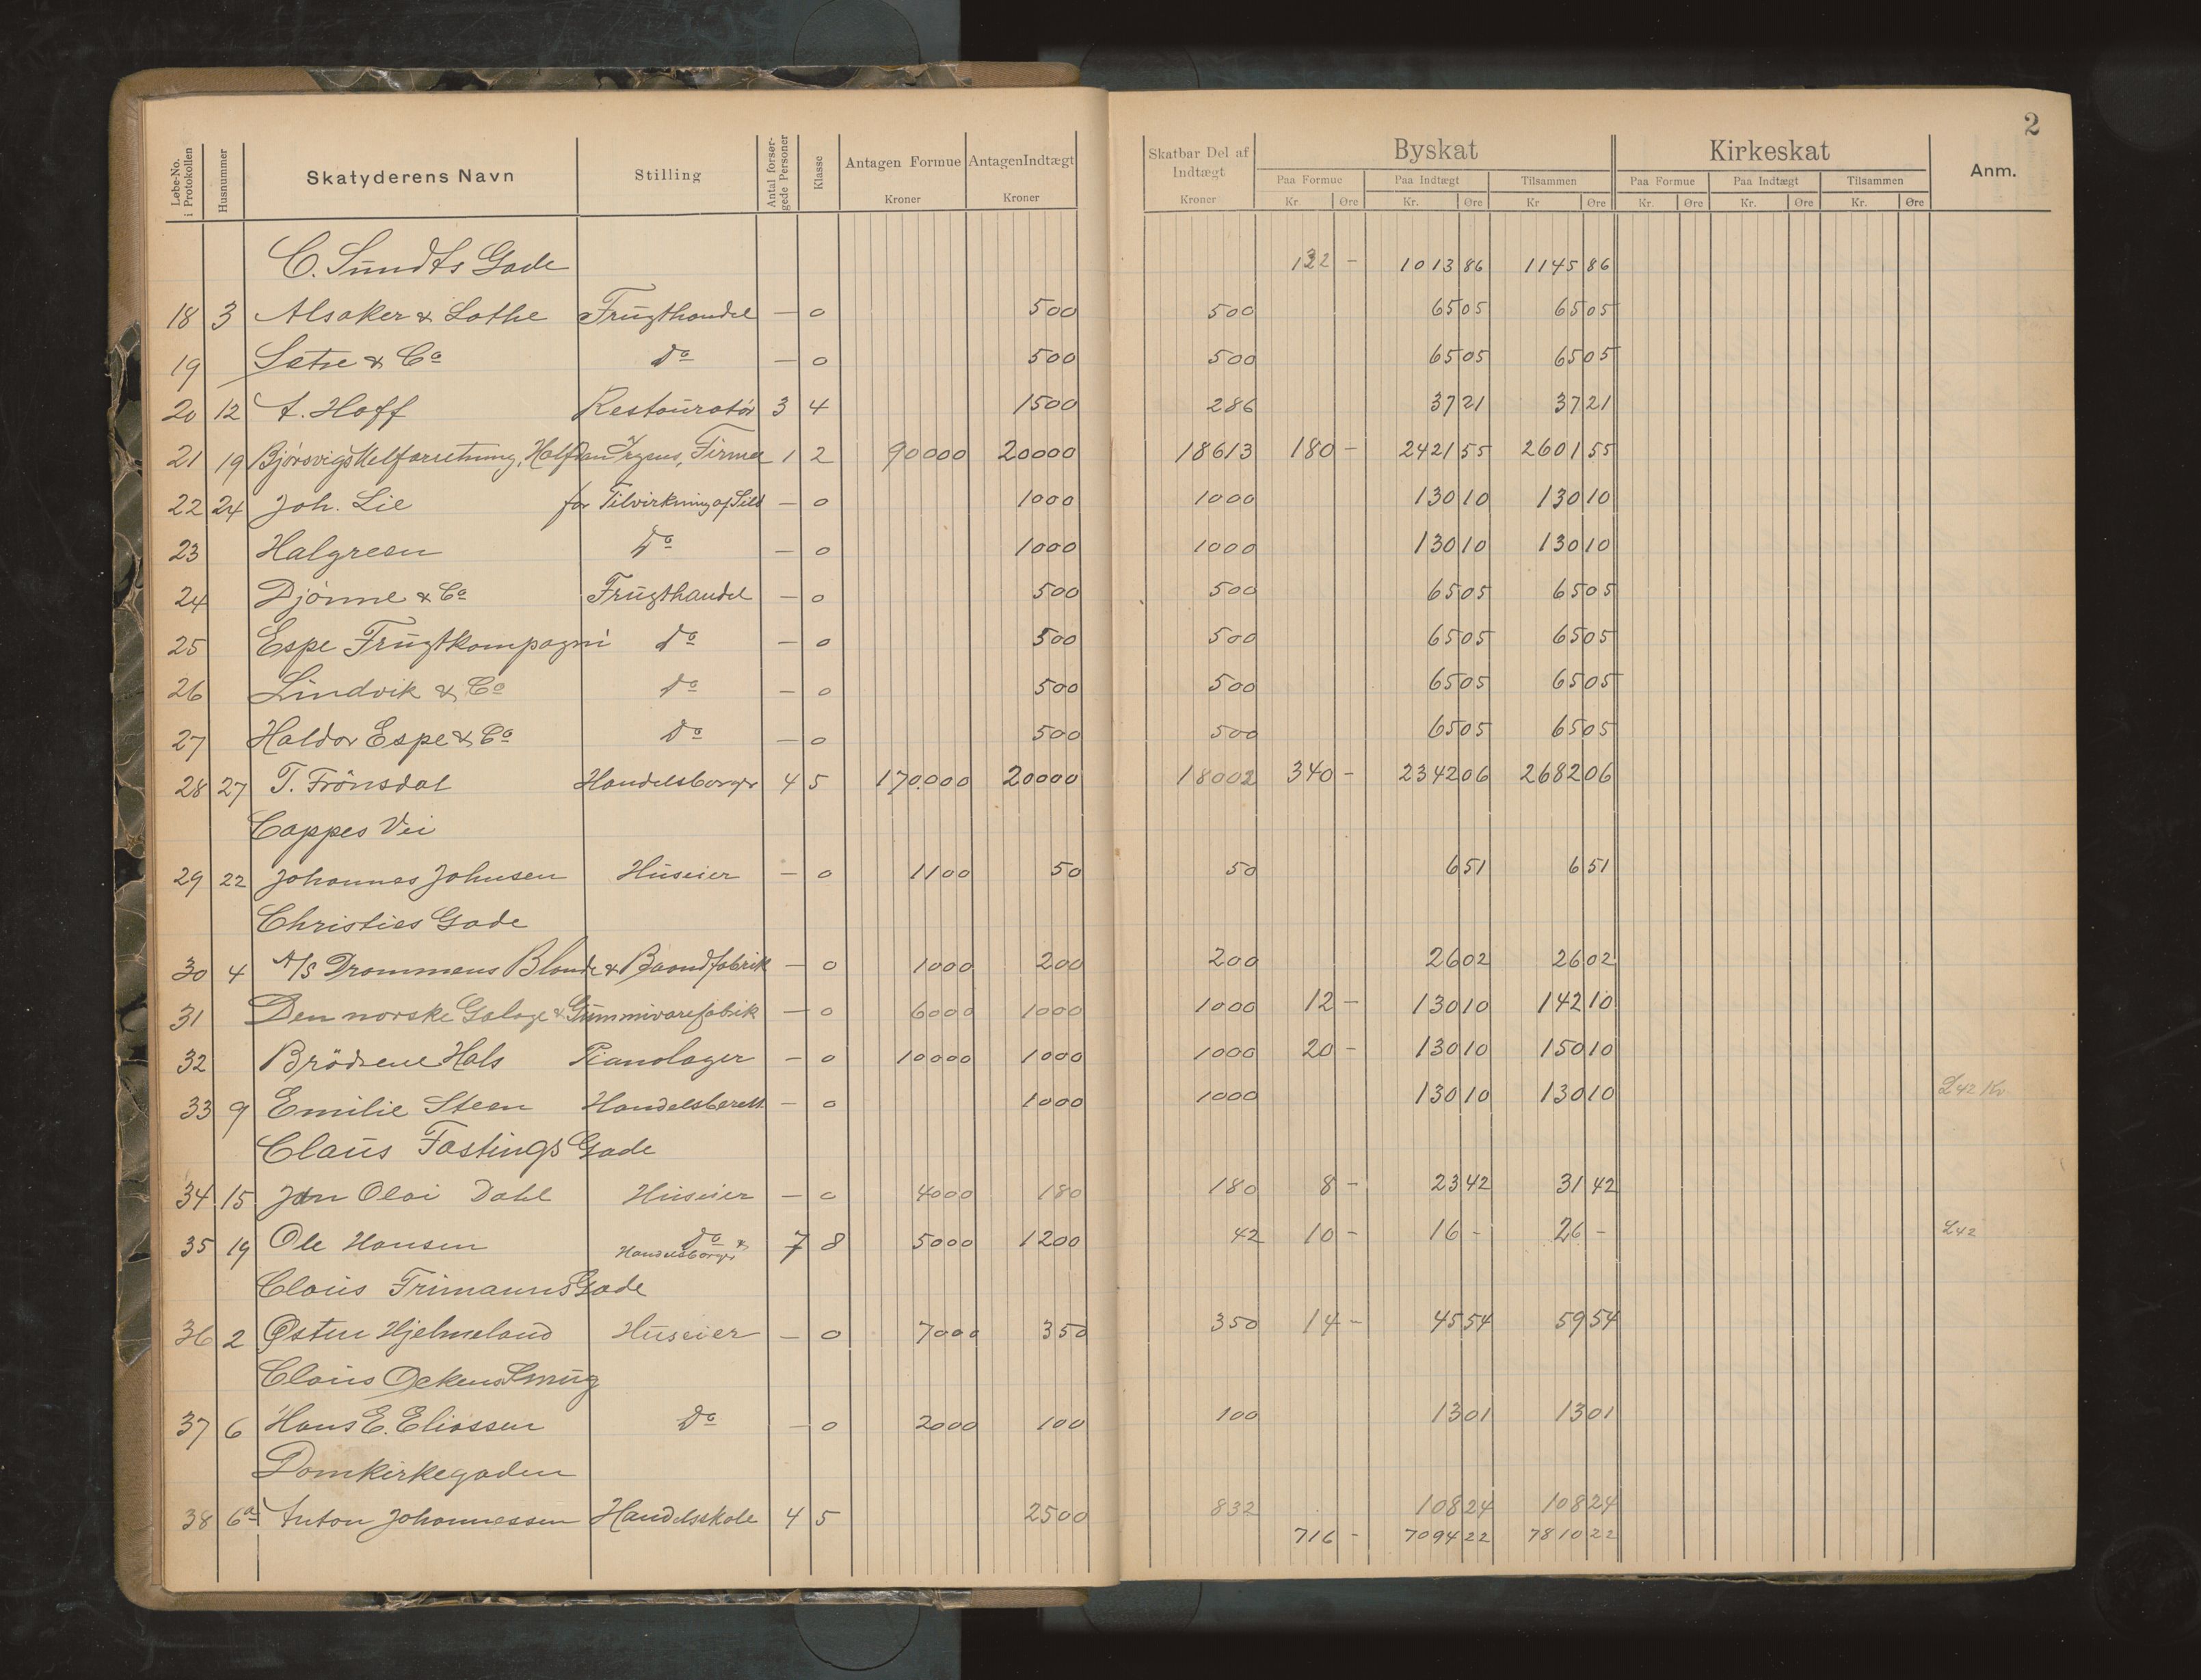 2
Løbe-No. i Protokollen Husnummer Skatyderens Navn Stilling Antal forsørgede Personer Klasse Antagen Formue Kroner Antagen Indtægt Kroner Skatbar Del af Indtægt Kroner Byskat Paa Formue Kr. Øre Paa Indtægt Kr. Øre Tilsammen Kr Øre Kirkeskat Paa Formue Kr. Øre Paa Indtægt Kr. Øre Tilsammen Kr. Øre Anm.
C. Sundts Gade 132 - 1013 86 1145 86
18 3 Alsaker & Lothe Frugthandel — 0 500 500 65 05 65 05
19 Sætre & Co do — 0 500 500 65 05 65 05
20 12 A. Hoff Restauratør 3 4 1500 286 37 21 37 21
21 19 Bjørsvigs Melforretning, Halfdan Irgens, Firma 1 2 90000 20000 18613 180 - 2421 55 2601 55
22 24 Joh. Lie for Tilvirkning af Sild — 0 1000 1000 130 10 130 10
23 Halgreen do — 0 1000 1000 130 10 130 10
24 Djønne & Co Frugthandel — 0 500 500 65 05 65 05
25 Espe Frugtkompagni do — 0 500 500 65 05 65 05
26 Lindvik & Co do — 0 500 500 65 05 65 05
27 Haldor Espe & Co do — 0 500 500 65 05 65 05
28 27 T. Frönsdal Handelsborger 4 5 170.000 20000 18002 340 - 2342 06 2682 06
Cappes Vei
29 22 Johannes Johnsen Huseier — 0 1100 50 50 6 51 6 51
Christies Gade
30 4 A/S Drammens Blonde & Baandfabrik — 0 1000 200 200 26 02 26 02
31 Den norske Galoge & Gummivarefabrik — 0 6000 1000 1000 12 - 130 10 142 10
32 Brödrene Hals Pianolager — 0 10000 1000 1000 20 - 130 10 150 10
33 9 Emilie Steen Handelsberett — 0 1000 1000 130 10 130 10 L42 Kv
Claus Fastings Gade
34 15 Jon Olai Dahl Huseier — 0 4000 180 180 8 - 23 42 31 42
35 19 Ole Hansen do & Handelsborger 7 8 5000 1200 42 10 - 16 - 26 - L42
Claus Frimanns Gade
36 2 Østen Hjelmeland Huseier — 0 7000 350 350 14 - 45 54 59 54
Claus Ockens Smug
37 6 Hans E. Eliassen Do — 0 2000 100 100 13 01 13 01
Domkirkegaden
38 6a Anton Johannessen Handelsskole 4 5 2500 832 108 24 108 24
716 - 7094 22 7810 22